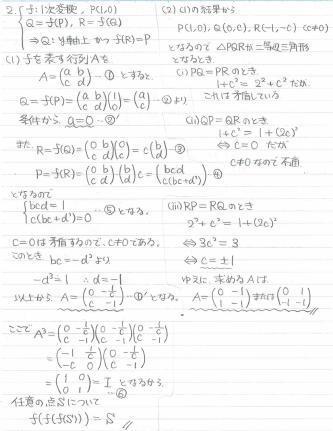 2. { f:1次変換, P(1,0)
Q = f(P), R = f(Q)
⇒ Q:y軸上 かつ f(R)=P
(1) f を表す行列 A を
A = (a b / c d) … ① とすると、
Q = f(P) = (a b / c d)(1 / 0) = (a / c) … ② より
条件から a=0 … ②'
また R = f(Q) = (0 b / c d)(0 / c) = c(b / d) … ③
P = f(R) = (0 b / c d)(b / d)c = (bcd / c(bc+d²)) … ④
となるので
{ bcd = 1
c(bc+d²) = 0 … ⑤ となる。
C=0 は矛盾するので、C≠0 である。
このとき bc = -d² より
-d³ = 1 ∴ d = -1
以上から A = (0 -1/c / c -1) … ①' となる。
ここで A³ = (0 -1/c / c -1)(0 -1/c / c -1)(0 -1/c / c -1)
= (-1 1/c / -c 0)(0 -1/c / c -1)
= (1 0 / 0 1) = I となるから、
… ⑥
任意の点 S について
f(f(f(S))) = S //
(2) (1)の結果から
P(1,0), Q(0,c), R(-1,-c) (c≠0)
となるので △PQRが二等辺三角形
となるとき、
(i) PQ = PR のとき
1+c² = 2²+c² だが、
これは矛盾している
(ii) QP = QR のとき
1+c² = 1+(2c)²
⇔ c = 0 だが
c≠0 なので 不適
(iii) RP = RQ のとき
2²+c² = 1+(2c)²
⇔ 3c² = 3
⇔ c = ±1
ゆえに、求める A は
A = (0 -1 / 1 -1) または (0 1 / -1 -1) //